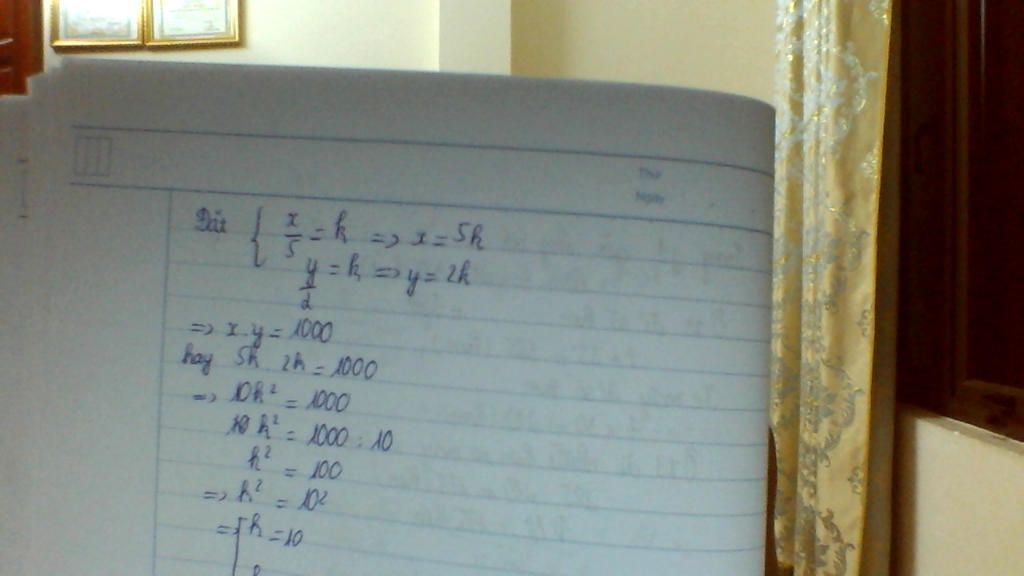 Thứ
Ngày
Đặt { x/5 = k => x = 5k
y/2 = k => y = 2k
=> x.y = 1000
hay 5k . 2k = 1000
=> 10k² = 1000
k² = 1000 : 10
k² = 100
=> k² = 10²
=> [ k = 10